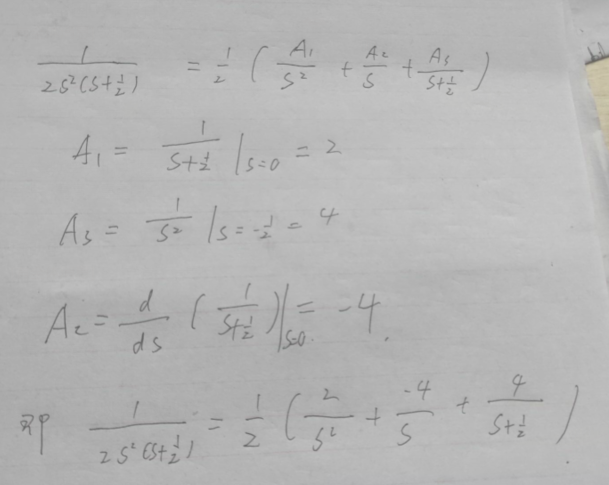 1/(2s²(s+1/2)) = 1/2 ( A₁/s² + A₂/s + A₃/(s+1/2) )
A₁ = 1/(s+1/2) |s=0 = 2
A₃ = 1/s² |s=-1/2 = 4
A₂ = d/ds ( 1/(s+1/2) ) |s=0 = -4.
即 1/(2s²(s+1/2)) = 1/2 ( 2/s² + -4/s + 4/(s+1/2) )